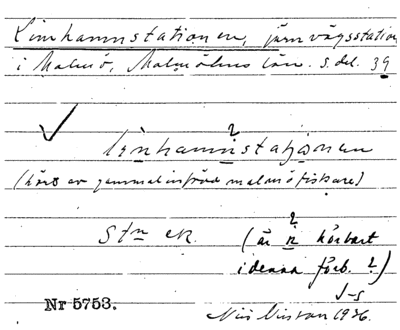 Limhamnstationen, järnvägsstation
i Malmö, Malmöhus län. S. del. 39
✓
2
limhamnstaʃonen
(hört av gammal infödd malmöfiskare)
2
Stn ek. (är n hörbart
i denna förb. ?)
J-s
Nr 5753.
1936.